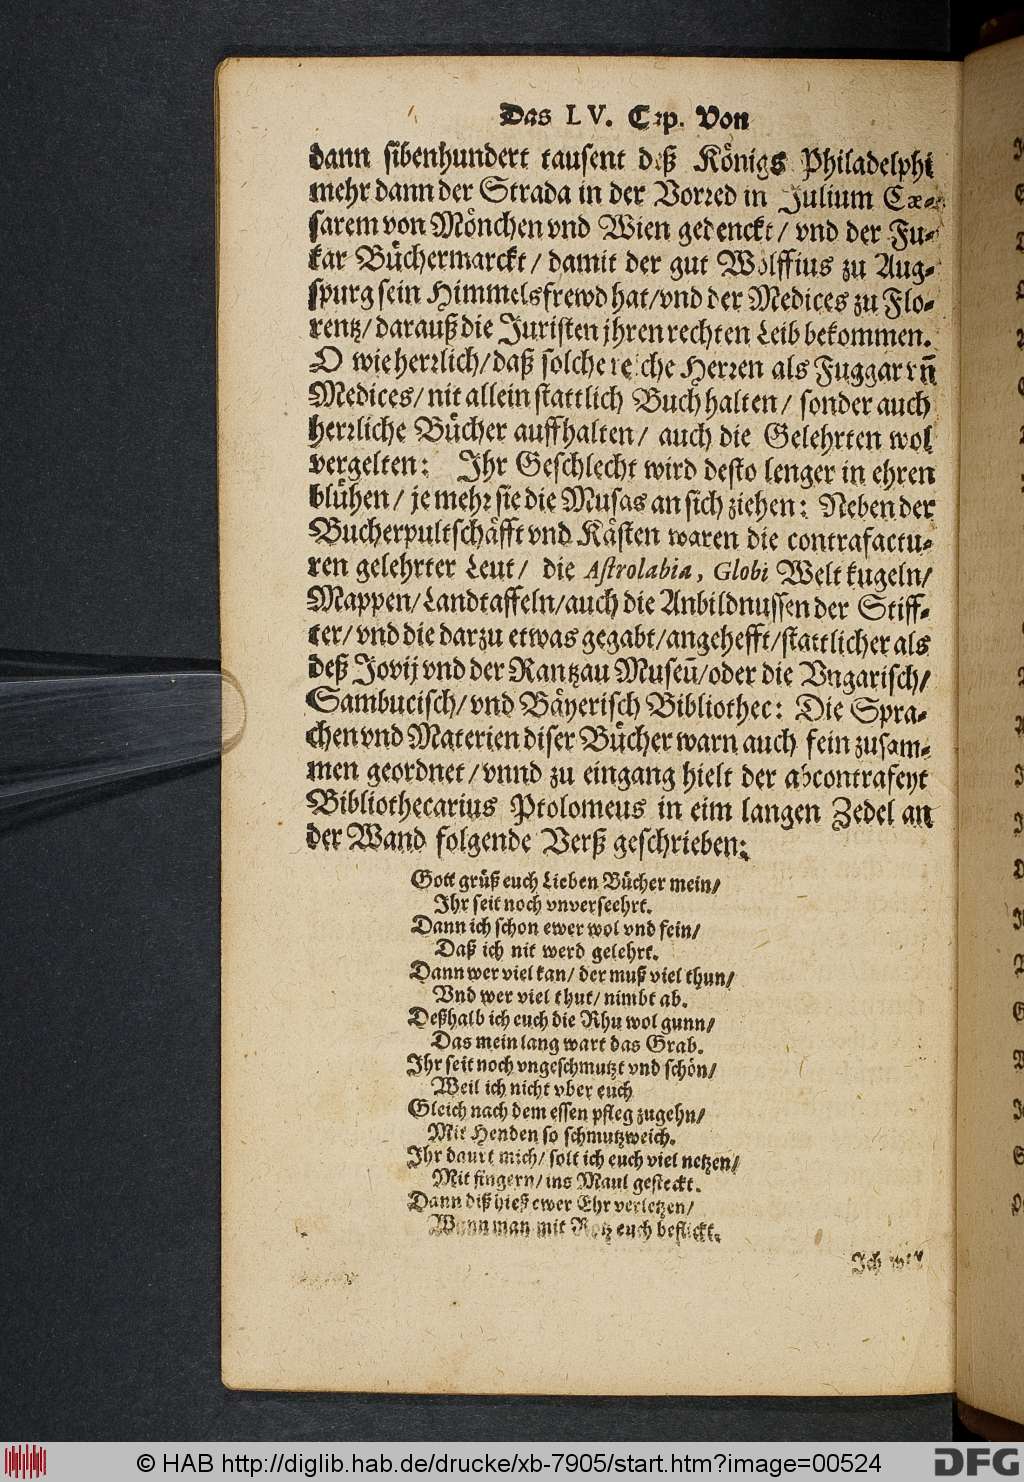 Das LV. Cap. Von
dann sibenhundert tausent deß Königs Philadelphi
mehr dann der Strada in der Vorred in Julium Cæ-
sarem von Mönchen vnd Wien gedenckt / vnd der Fu-
kar Büchermarckt / damit der gut Wolffius zu Aug-
spurg sein Himmelsfrewd hat/vnd der Medices zu Flo-
rentz/ darauß die Juristen jhren rechten Leib bekommen.
O wie herrlich/ daß solche reiche Herren als Fuggar vn̄
Medices/ nit allein stattlich Buch halten/ sonder auch
herrliche Bücher auffhalten/ auch die Gelehrten wol
vergelten: Ihr Geschlecht wird desto lenger in ehren
blühen / je mehr sie die Musas an sich ziehen: Neben der
Bucherpultschäfft vnd Kästen waren die contrafactu-
ren gelehrter Leut/ die Astrolabia, Globi Welt kugeln/
Mappen/Landtaffeln/auch die Anbildnussen der Stiff-
ter/ vnd die darzu etwas gegabt/angehefft/stattlicher als
deß Jovij vnd der Rantzau Museū/oder die Vngarisch/
Sambucisch/ vnd Bäyerisch Bibliothec: Die Spra-
chen vnd Materien diser Bücher warn auch fein zusam-
men geordnet/vnnd zu eingang hielt der abcontrafeyt
Bibliothecarius Ptolomeus in eim langen Zedel an
der Wand folgende Verß geschrieben:
Gott grüß euch Lieben Bücher mein/
Ihr seit noch vnverseehrt.
Dann ich schon ewer wol vnd fein/
Daß ich nit werd gelehrt.
Dann wer viel kan/ der muß viel thun/
Vnd wer viel thut/ nimbt ab.
Deßhalb ich euch die Rhu wol gunn/
Das mein lang wart das Grab.
Ihr seit noch vngeschmutzt vnd schön/
Weil ich nicht vber euch
Gleich nach dem essen pfleg zugehn/
Mit Henden so schmutzweich.
Ihr daurt mich/ solt ich euch viel netzen/
Mit fingern/ ins Maul gesteckt.
Dann diß hieß ewer Ehr verletzen/
Wann man mit Rotz euch befleckt.
Ich wil
© HAB http://diglib.hab.de/drucke/xb-7905/start.htm?image=00524
DFG